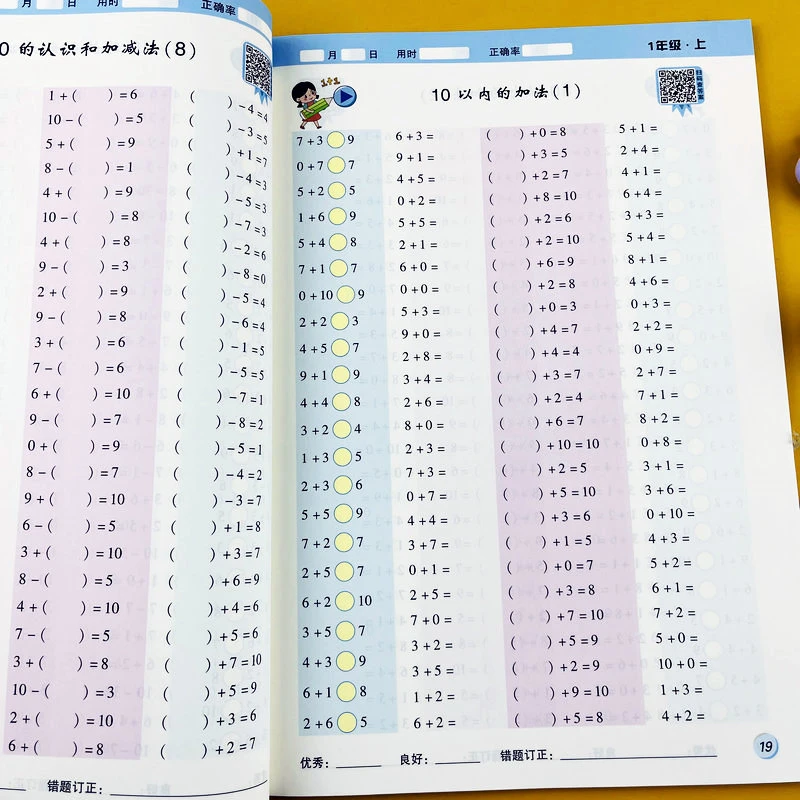 月 日 用时 正确率
0 的认识和加减法(8)
1+( )=6
10-( )=5
5+( )=9
8-( )=1
4+( )=9
10-( )=8
4+( )=8
9-( )=3
2+( )=9
9-( )=8
3+( )=6
7-( )=6
6+( )=10
9-( )=7
0+( )=9
8-( )=7
9+( )=10
6-( )=5
3+( )=10
8-( )=5
4+( )=10
7-( )=5
3+( )=8
10-( )=3
2+( )=10
6+( )=8
( )-4=4
( )-3=5
( )+1=7
( )-4=3
( )-5=3
( )-7=3
( )-2=6
( )-8=0
( )-5=4
( )-6=4
( )-1=5
( )-5=5
( )-7=1
( )-8=2
( )-5=1
( )-4=2
( )-3=7
( )+1=8
( )+3=7
( )+6=9
( )+4=6
( )+5=6
( )+7=10
( )+5=9
( )+3=6
( )+2=7
错题订正:
月 日 用时 正确率 1年级·上
1+1
10 以内的加法(1)
扫码查答案
7+3○9
0+7○7
5+2○5
1+6○9
5+4○8
7+1○7
0+10○9
2+2○3
4+5○7
9+1○9
4+4○8
3+2○4
1+3○5
2+3○6
5+5○9
7+2○7
2+5○7
6+2○10
3+5○7
4+3○9
6+1○8
2+6○5
6+3=
9+1=
4+5=
0+2=
5+5=
2+1=
6+0=
0+0=
5+3=
9+0=
2+8=
3+4=
2+6=
8+0=
2+3=
7+3=
0+7=
4+4=
3+7=
0+1=
2+5=
7+0=
3+2=
3+5=
1+2=
6+2=
( )+0=8
( )+3=5
( )+2=7
( )+8=10
( )+2=6
( )+2=10
( )+6=9
( )+2=8
( )+0=3
( )+4=7
( )+4=4
( )+3=7
( )+2=4
( )+6=7
( )+10=10
( )+2=5
( )+5=10
( )+3=6
( )+1=5
( )+0=7
( )+3=8
( )+7=10
( )+5=9
( )+2=9
( )+9=10
( )+5=8
5+1=
2+4=
4+1=
6+4=
3+3=
5+4=
8+1=
4+6=
0+3=
2+2=
0+9=
2+7=
7+1=
8+2=
0+8=
3+1=
3+6=
0+10=
4+3=
5+2=
6+1=
7+2=
5+0=
10+0=
1+3=
4+2=
优秀: 良好: 错题订正:
19